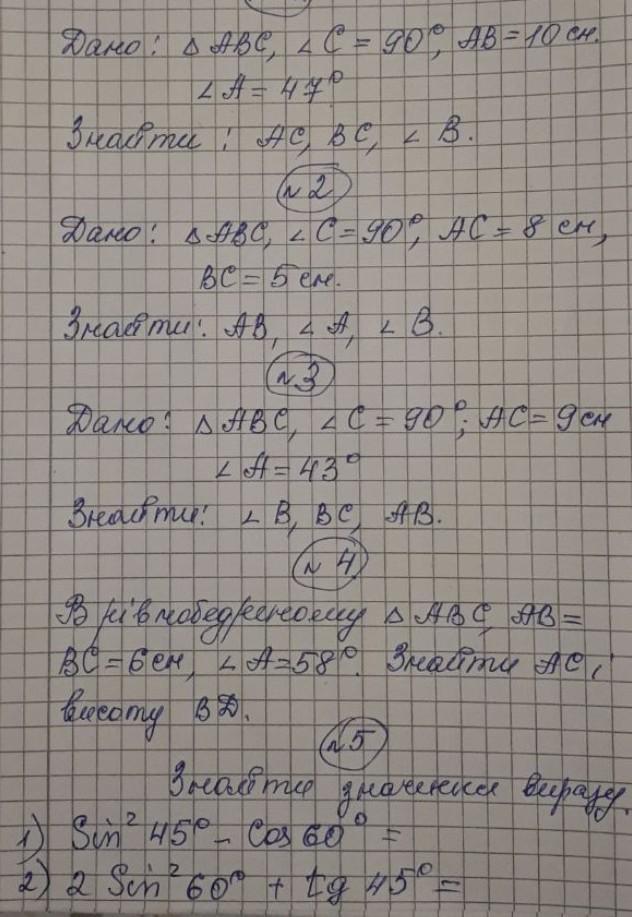 Дано: △ABC, ∠C = 90°, AB = 10 см.
∠A = 47°
Знайти: AC, BC, ∠B.
№2
Дано: △ABC, ∠C = 90°, AC = 8 см,
BC = 5 см.
Знайти: AB, ∠A, ∠B.
№3
Дано: △ABC, ∠C = 90°; AC = 9 см
∠A = 43°
Знайти: ∠B, BC, AB.
№4
В рівнобедреному △ABC, AB =
BC = 6 см, ∠A = 58°. Знайти AC,
висоту BD.
№5
Знайти значення виразу.
1) Sin² 45° - Cos 60° =
2) 2 Sin² 60° + tg 45° =